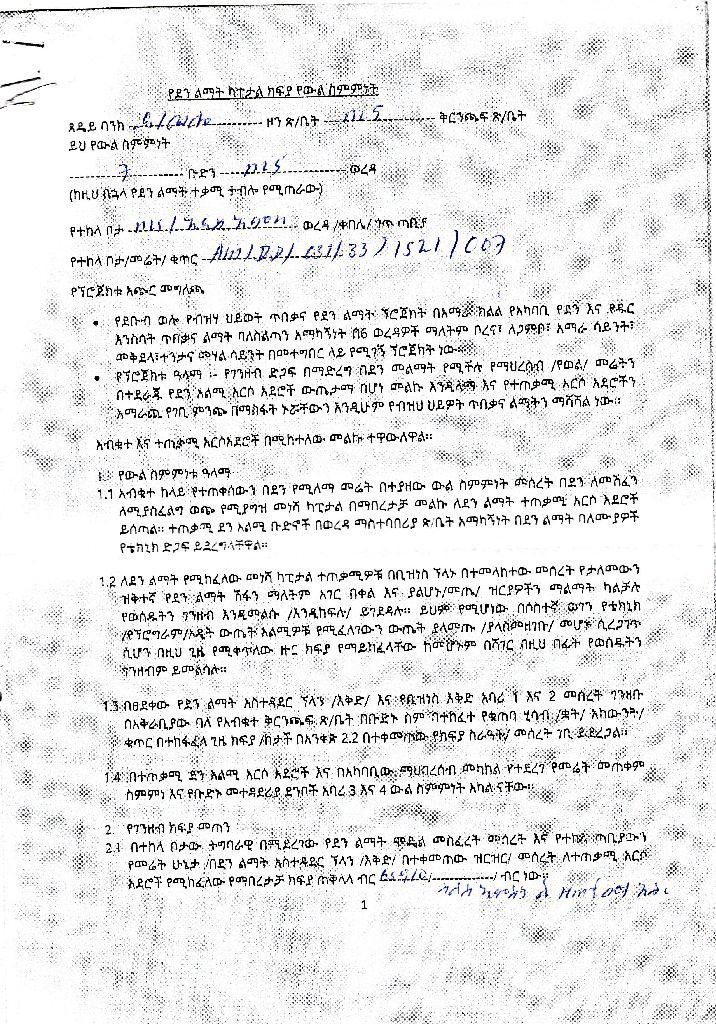 የደን ልማት ካፒታል ክፍያ የውል ስምምነት
ጸዴይ ባንክ ዞን ጽ/ቤት ቅርንጫፍ ጽ/ቤት
ይህ የውል ስምምነት
7 ቡድን ወረዳ
(ከዚህ በኋላ የደን ልማት ተቃሚ ተብሎ የሚጠራው)
የተከላ ቦታ ወረዳ /ቀበሌ/ ንዑስ ጣቢያ
የተከላ ቦታ/መሬት/ ቁጥር 1521/C07
የፕሮጀክቱ አጭር መግለጫ
• የደቡብ ወሎ የብዝሃ ህይወት ጥበቃና የደን ልማት ፕሮጀክት በአማራ ክልል የአካባቢ የደን እና የዱር
እንስሳት ጥበቃና ልማት ባለስልጣን አማካኝነት በ6 ወረዳዎች ማለትም ቦረና፣ ለጋምቦ፣ አማራ ሳይንት፣
መቅደላ፣ተንታና መሃል ሳይንት በመተግበር ላይ የሚገኝ ፕሮጀክት ነው።
• የፕሮጀክቱ ዓላማ ፡- የገንዘብ ድጋፍ በማድረግ በደን መልማት የሚችሉ የማህረሰብ /የወል/ መሬትን
በተደራጁ የደን አልሚ አርሶ አደሮች ውጤታማ በሆነ መልኩ እንዲለማ እና የተጠቃሚ አርሶ አደሮችን
አማራጪ የገቢ ምንጭ በማስፋት ኑሯቸውን እንዲሁም የብዝሀ ህይዎት ጥበቃና ልማትን ማሻሻል ነው።
አብቁተ እና ተጠቃሚ አርሶአደሮች በሚከተለው መልኩ ተዋውለዋል።
1. የውል ስምምነቱ ዓላማ
1.1 አብቁተ ከላይ የተጠቀሰውን በደን የሚለማ መሬት በተያዘው ውል ስምምነት መሰረት በደን ለመሸፈን
ለሚያስፈልግ ወጭ የሚያግዝ መነሻ ካፒታል በማበረታቻ መልኩ ለደን ልማት ተጠቃሚ አርሶ አደሮች
ይሰጣል። ተጠቃሚ ደን አልሚ ቡድኖች በወረዳ ማስተባበሪያ ጽ/ቤት አማካኝነት በደን ልማት ባለሙያዎች
የቴክኒክ ድጋፍ ይደረግላቸዋል።
1.2 ለደን ልማት የሚከፈለው መነሻ ካፒታል ተጠቃሚዎቹ በቢዝነስ ፕላኑ በተመላከተው መሰረት የታለመውን
ዝቅተኛ የደን ልማት ሽፋን ማለትም አገር በቀል እና ያልሆኑ/መጤ/ ዝርያዎችን ማልማት ካልቻሉ
የወሰዱትን ገንዘብ እንዲመልሱ /እንዲከፍሉ/ ይገደዳሉ። ይህም የሚሆነው በሶስተኛ ወገን የቴክኒክ
/የፕሮግራም/ኦዲት ውጤት አልሚዎቹ የሚፈለገውን ውጤት ያላመጡ /ያላስመዘገቡ/ መሆኑ ሲረጋገጥ
ሲሆን በዚህ ጊዜ የሚቀጥለው ዙር ክፍያ የማይከፈላቸው ከመሆኑም በሻገር በዚህ በፊት የወሰዱትን
ገንዘብም ይመልሳሉ።
1.3 በፀደቀው የደን ልማት አስተዳደር ፕላን /እቅድ/ እና የቢዝነስ እቅድ አባሪ 1 እና 2 መሰረት ገንዘቡ
በአቅራቢያው ባለ የአብቁተ ቅርንጫፍ ጽ/ቤት በቡድኑ ስም በተከፈተ የቁጠባ ሂሳብ /ቋት/ አካውንት/
ቁጥር በተከፋፈለ ጊዜ ክፍያ /ከታች በአንቀጽ 2.2 በተቀመጠው የክፍያ ስራዓት/ መሰረት ገቢ ይደረጋል።
1.4 በተጠቃሚ ደን አልሚ አርሶ አደሮች እና በአካባቢው ማህብረሰብ መካከል የተደረገ የመሬት መጠቀም
ስምምነ እና የቡድኑ መተዳደሪያ ደንበች አባሪ 3 እና 4 ውል ስምምነት አካል ናቸው።
2. የገንዘብ ክፍያ መጠን
2.1 በተከላ ቦታው ትግባራዊ በሚደረገው የደን ልማት ሞዴል መስፈረት መሰረት እና የተከላ ጣቢያውን
የመሬት ሁኔታ /በደን ልማት አስተዳደር ፕላን /እቅድ/ በተቀመጠው ዝርዝር/ መሰረት ለተጠቃሚ አርሶ
አደሮች የሚከፈለው የማበረታቻ ክፍያ ጠቅላላ ብር / / ብር ነው።
1